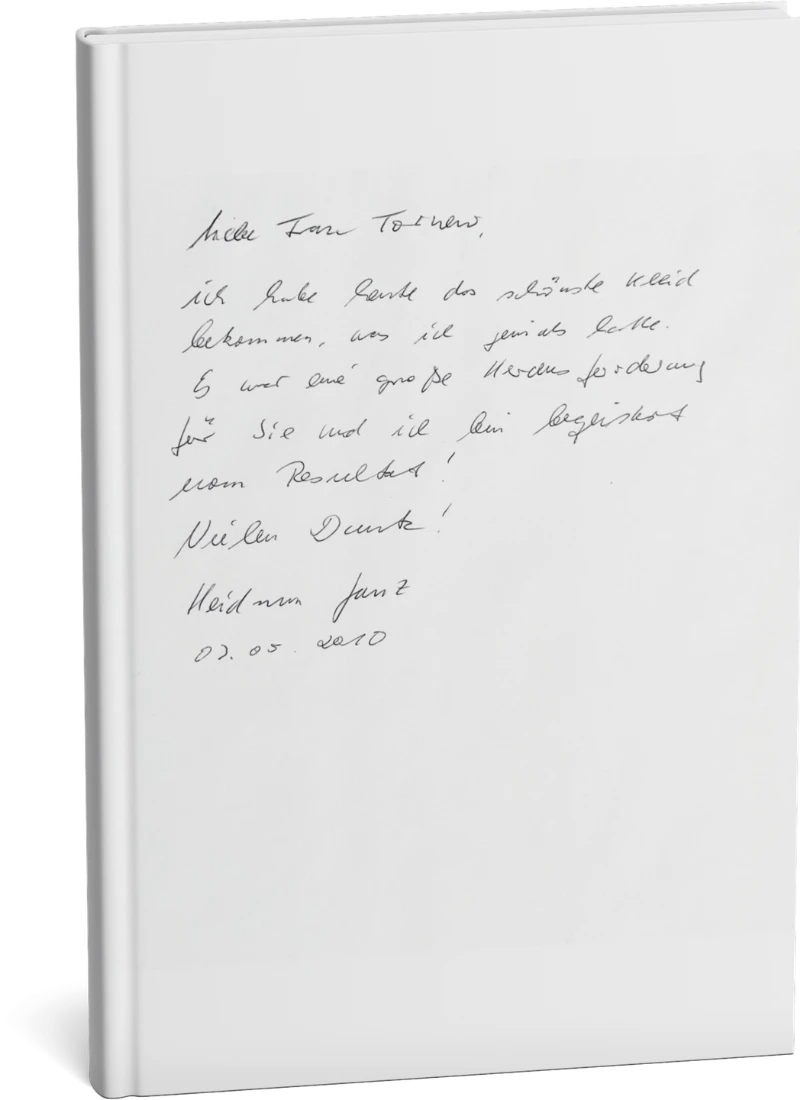 Liebe Frau Tornow,
ich habe heute das schönste Kleid
bekommen, was ich jemals hatte.
Es war eine große Herausforderung
für Sie und ich bin begeistert
vom Resultat!
Vielen Dank!
Heidrun Janz
03.05.2010